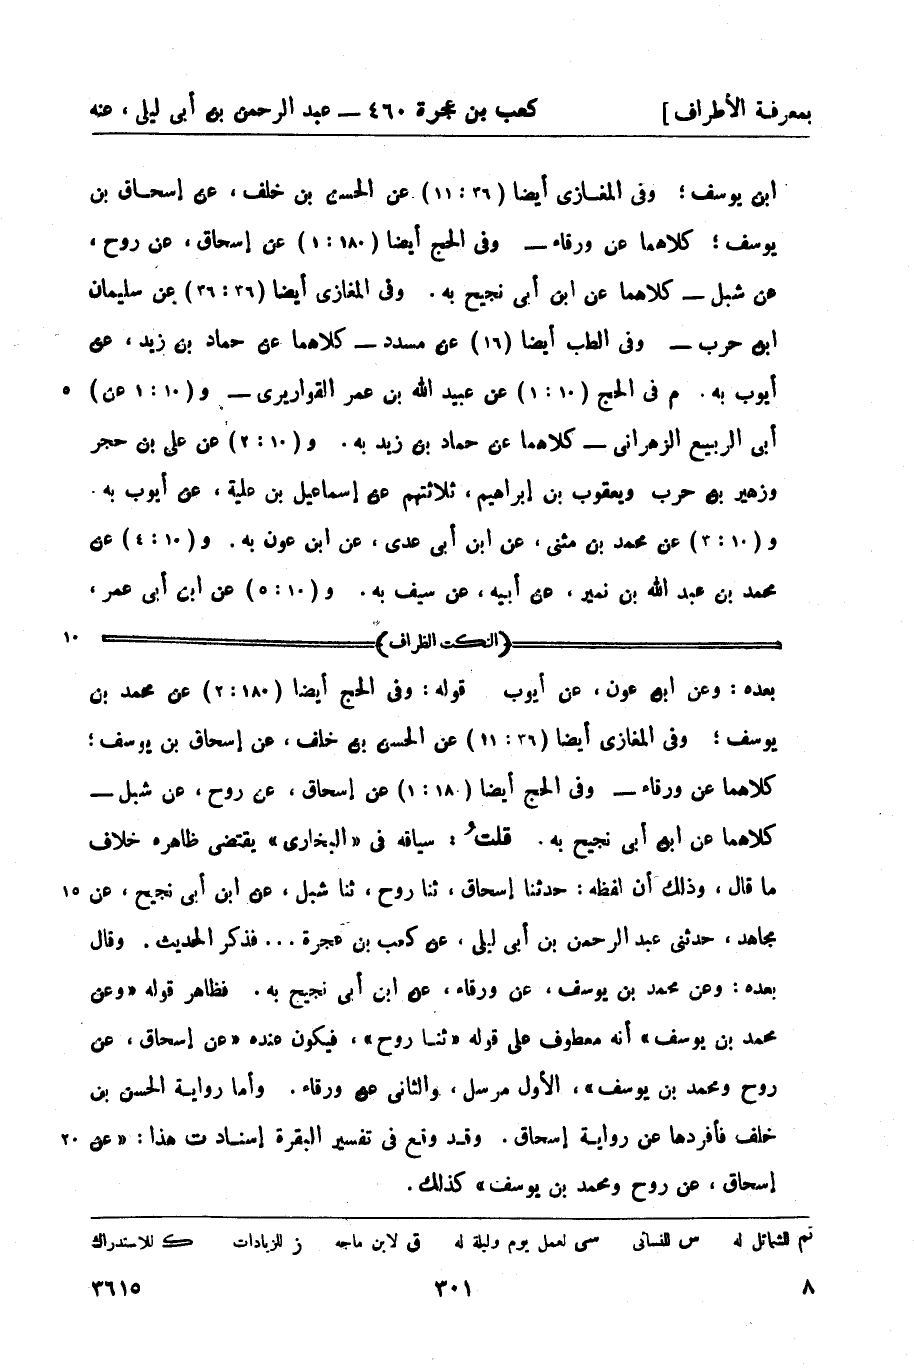 بمعرفة الأطراف ] كعب بن عجرة ٤٦٠ ــ عبد الرحمن بن أبى ليلى ، عنه
ابن يوسف ؛ وفى المغازى أيضا (٣٦ : ١١) عن الحسن بن خلف ، عن إسحاق بن
يوسف ؛ كلاهما عن ورقاء ــ وفى الحج أيضا (١٨٠ : ١) عن إسحاق ، عن روح ،
عن شبل ــ كلاهما عن ابن أبى نجيح به . وفى المغازى أيضا (٣٦ : ٣٦) عن سليمان
ابن حرب ــ وفى الطب أيضا (١٦) عن مسدد ــ كلاهما عن حماد بن زيد ، عن
أيوب به . م فى الحج (١٠ : ١) عن عبيد الله بن عمر القواريرى ــ و (١٠ : ١ عن) ٥
أبى الربيع الزهرانى ــ كلاهما عن حماد بن زيد به . و (١٠ : ٢) عن على بن حجر
وزهير بن حرب ويعقوب بن إبراهيم ، ثلاثتهم عن إسماعيل بن علية ، عن أيوب به .
و (١٠ : ٣) عن محمد بن مثنى ، عن ابن أبى عدى ، عن ابن عون به . و (١٠ : ٤) عن
محمد بن عبد الله بن نمير ، عن أبيه ، عن سيف به . و (١٠ : ٥) عن ابن أبى عمر ،
(النكت الظراف) ١٠
بعده : وعن ابن عون ، عن أيوب قوله : وفى الحج أيضا (١٨٠ : ٢) عن محمد بن
يوسف ؛ وفى المغازى أيضا (٣٦ : ١١) عن الحسن بن خلف ، عن إسحاق بن يوسف ؛
كلاهما عن ورقاء ــ وفى الحج أيضا (١٨٠ : ١) عن إسحاق ، عن روح ، عن شبل ــ
كلاهما عن ابن أبى نجيح به . قلتُ : سياقه فى «البخارى» يقتضى ظاهره خلاف
ما قال ، وذلك أن لفظه : حدثنا إسحاق ، ثنا روح ، ثنا شبل ، عن ابن أبى نجيح ، عن ١٥
مجاهد ، حدثنى عبد الرحمن بن أبى ليلى ، عن كعب بن عجرة ... فذكر الحديث . وقال
بعده : وعن محمد بن يوسف ، عن ورقاء ، عن ابن أبى نجيح به . فظاهر قوله «وعن
محمد بن يوسف» أنه معطوف على قوله «ثنا روح» ، فيكون عنده «عن إسحاق ، عن
روح ومحمد بن يوسف» ، الأول مرسل ، والثانى عن ورقاء . وأما رواية الحسن بن
خلف فأفردها عن رواية إسحاق . وقد وقع فى تفسير البقرة إسناد ت هذا : «عن ٢٠
إسحاق ، عن روح ومحمد بن يوسف» كذلك .
تم الشمائل له س للنسائى سى لعمل يوم وليلة له ق لابن ماجه ز للزيادات ك للاستدراك
٨ ٣٠١ ٣٦١٥